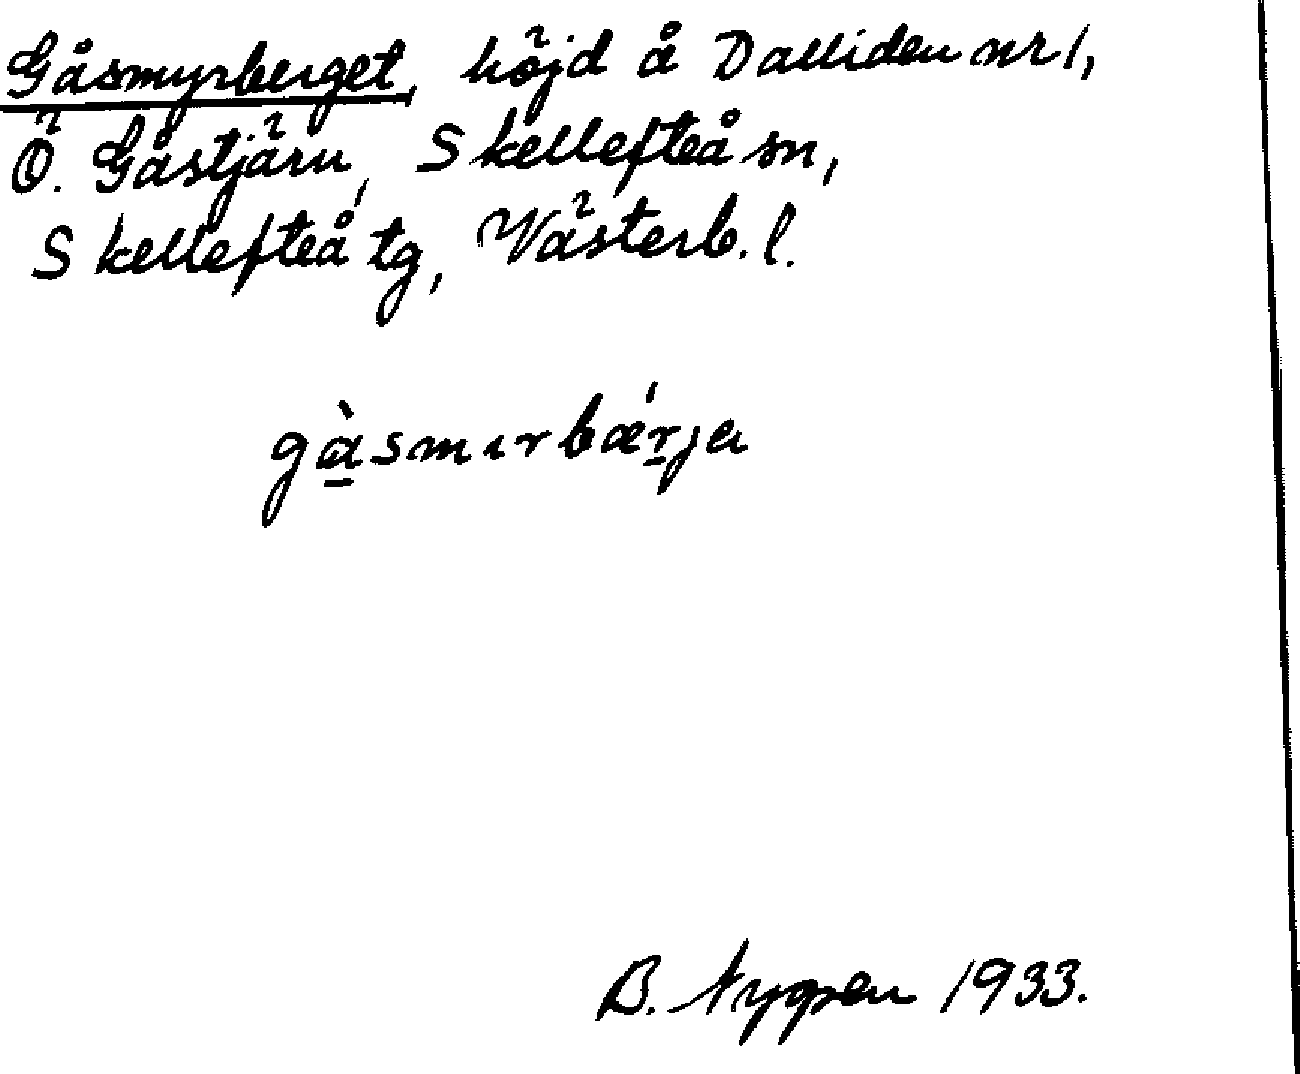 Gåsmyrberget, höjd å Dalliden nr 1,
Ö. Gåstjärn, Skellefteå sn,
Skellefteå tg, Västerb. l.
gàsmırbǽrja
B. Nygren 1933.